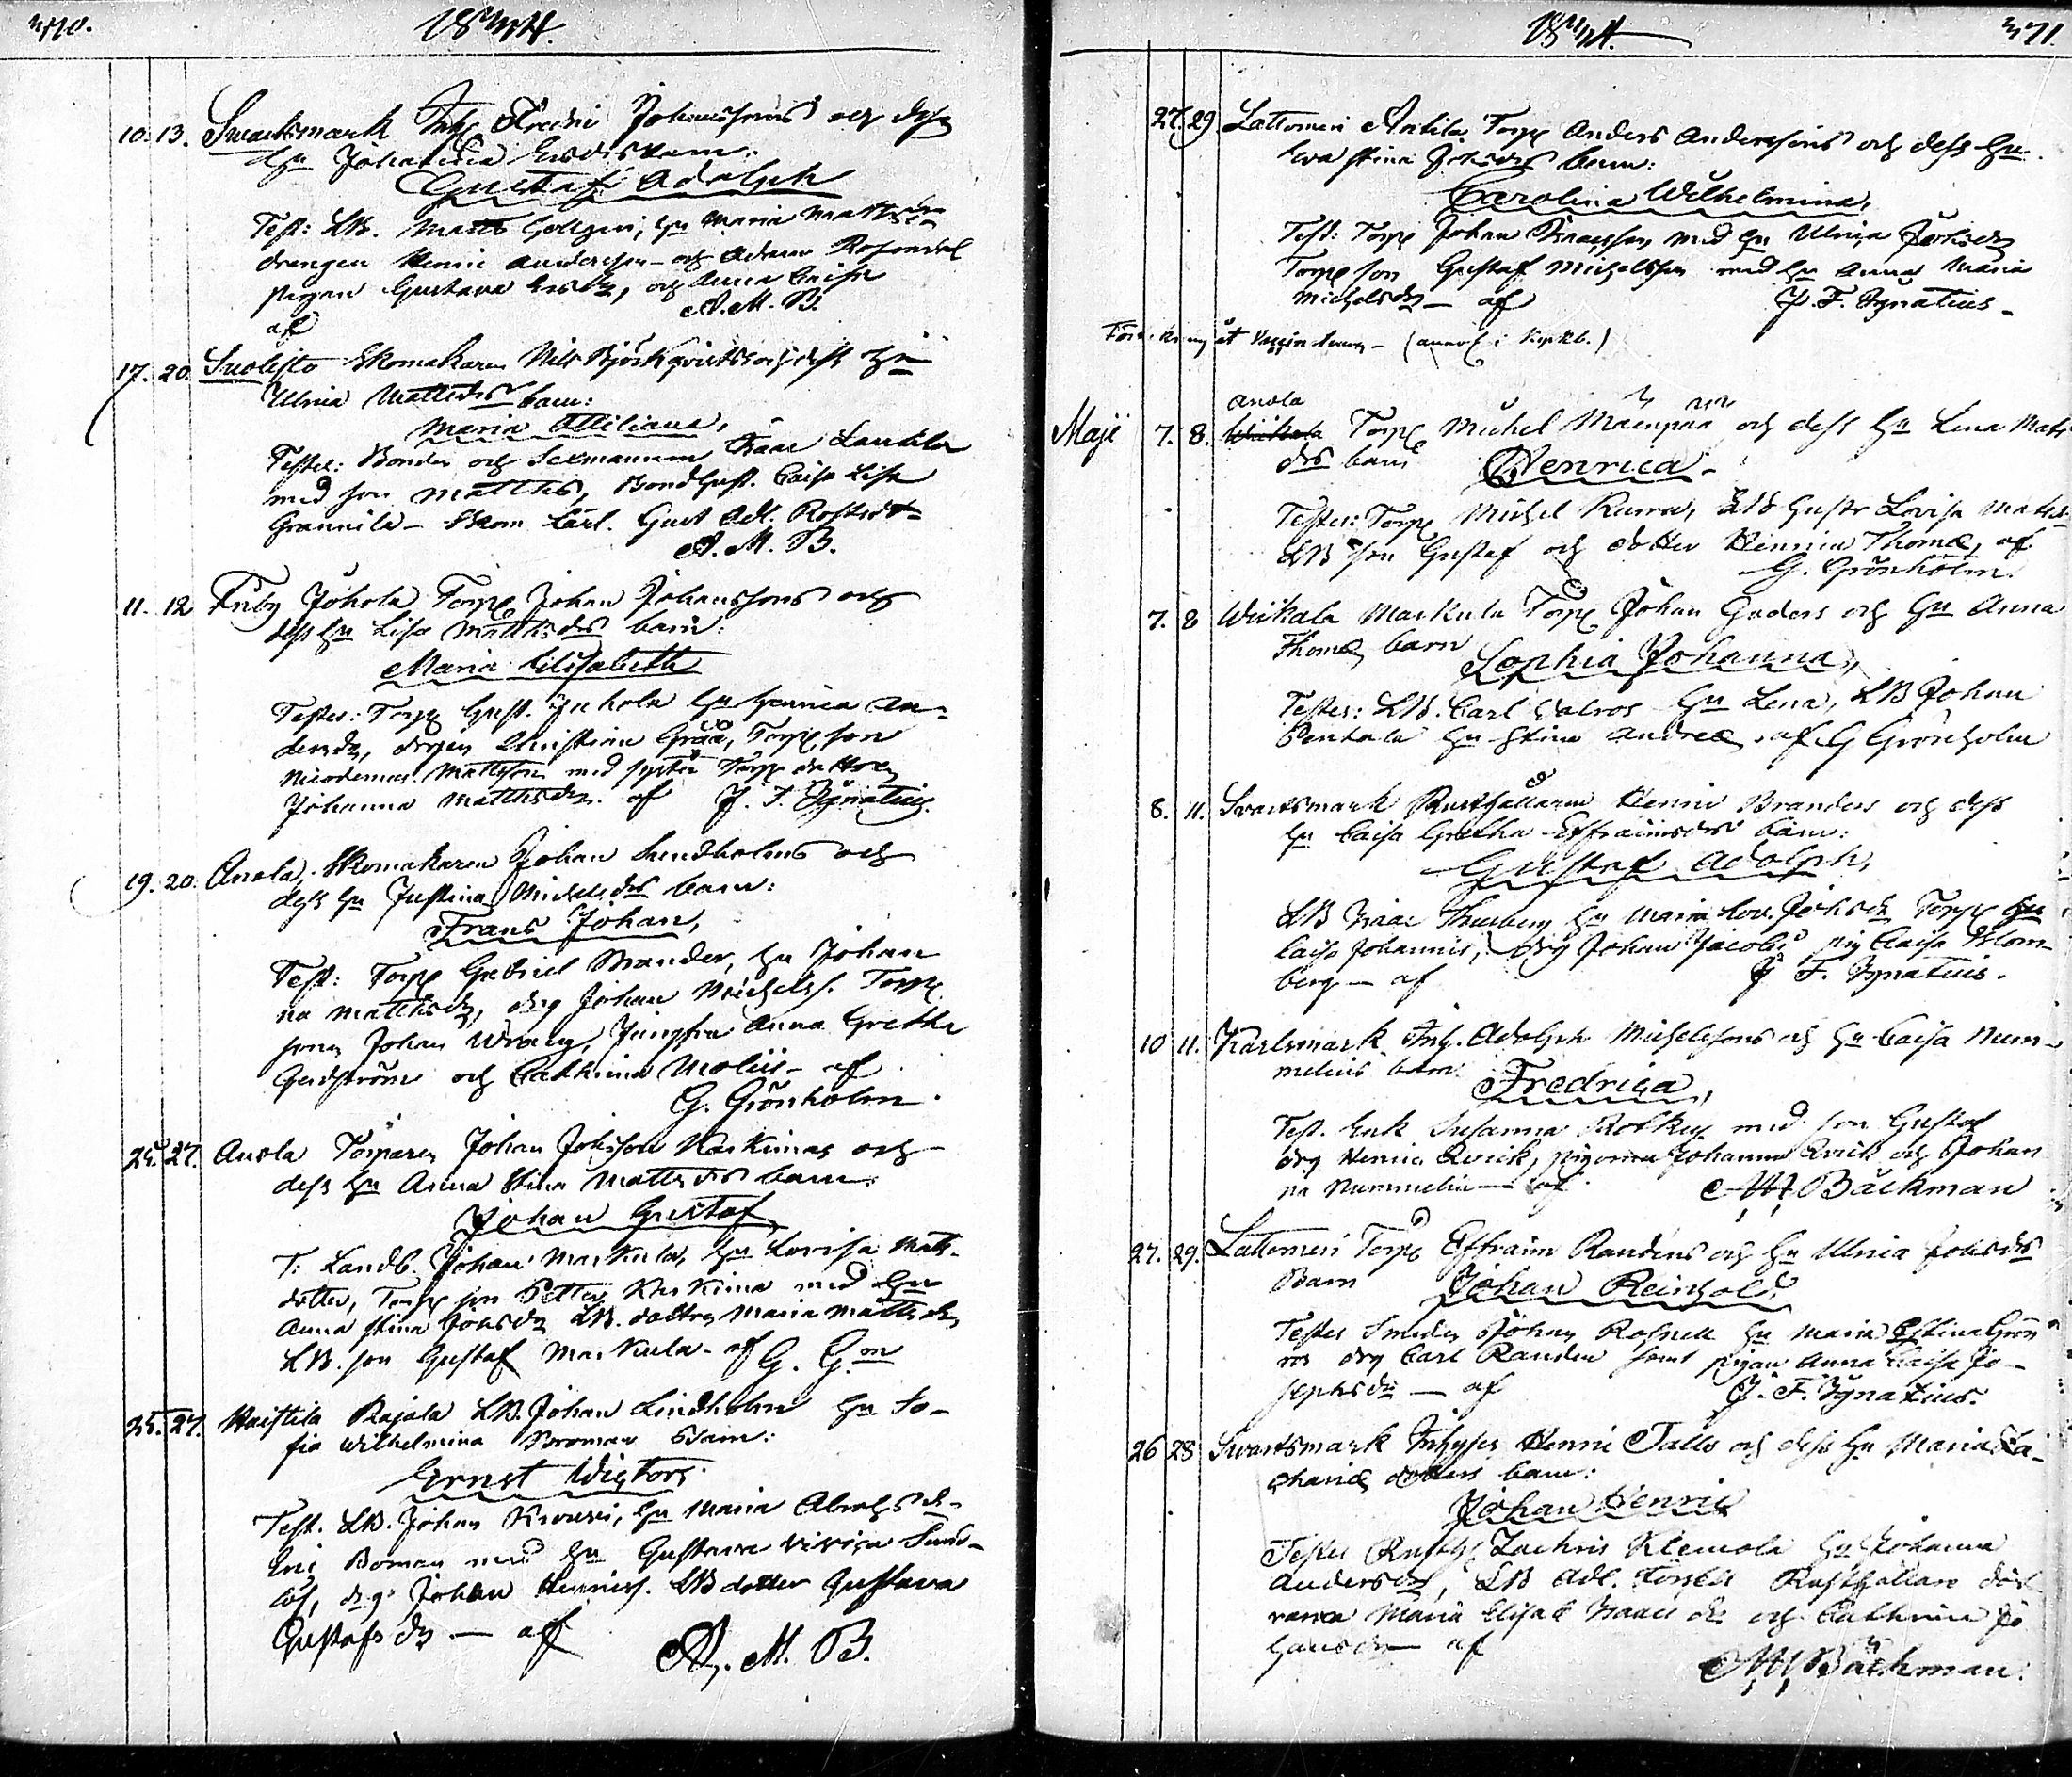 370.
10. 13. Swartsmark Inh. Fredric Johanssons och dess
Hu Johanna Ersdrs barn:
Gustaf Adolph
Test: LB. Matts Hu Maria Mattsdr
drengen Henric Andersson och Adam Rosendal
pigan Gustava Ersdr, och Anna Caisa
af A. M. B.
17. 20. Suolisto Skomakaren Nils Björkqvists och dess Hu
Ulrica Mattsdrs barn:
Maria Ottiliana,
Testes: Bonden och Sexmannen Isaac Lautila
med son Matthis, Bond Hust. Caisa Lisa
Grannila - Skom Lärl. Gust Adl. Rostedt
A. M. B.
11. 12 Friby Johola Torp Johan Johanssons och
dess Hu Lisa Matthsdrs barn:
Maria Elisabeth
Testes: Torp Gust. Juhola Hu Henrica An-
dersdr, drgen Christian Grää, Torp son
Nicodemus Mattsson med syster Torp dotter
Johanna Matthsdr. af J. F. Ignatius.
19. 20. Anola, Skomakaren Johan Sundholms och
dess Hu Justina Michelsdrs barn:
Frans Johan,
Test: Torp Gabriel Brander, Hu Johan
na Matthsdr, drg Johan Michelss. Torp
sonen Johan Wrang, Jungfru Anna Gretha
och Cathrina Moliis - af
G. Grönholm.
25. 27. Anola Torparen Johan Johsson Kaskinas och
dess Hu Anna Stina Mattsdrs barn:
Johan Gustaf
T: Landb. Johan Markula, Hu Lovisa Matts-
dotter, Torp son Petter Kaskina med Hu
Anna Stina Johsdr LB. dottren Maria Mattsdr
LB. son Gustaf Markula - af G. Gm
25. 27. Haistila Rajala LB. Johan Lindholm Hu So-
fia Wilhelmina Bromans Barn:
Ernst Victor.
Test. LB. Johan Krouvi, Hu Maria Abrahsdr
Eric Boman med Hu Gustava Vivica Sund-
löf, drg. Johan Henricss. LB dotter Gustava
Gustafsdr - af A. M. B.
371.
27. 29. Lattomeri Antila Torp Anders Anderssons och dess Hu
Eva Stina Johsdrs barn:
Carolina Wilhelmina,
Test: Torp Johan Isacsson med Hu Ulrica Johsdr
Torp son Gustaf Michelsson med Hu Anna Maria
Michelsdr - af J. F. Ignatius -
Maji 7. 8. Anola Torp Michel Mäenpää och dess Hu Lena Matts
drs barn Henrica -
Testes: Torp Michel Ruma, LB Hustr Lovisa Mattsd
LB son Gustaf och dotter Henrica Thomæ, af
G. Grönholm.
7. 8 Wiikala Markula Torp Johan Gaders och Hu Anna
Thomæ barn Sophia Johanna,
Testes: LB. Carl Valros Hu Lena, LB Johan
Pentala Hu Stina Andreæ, af G Grönholm
8. 11. Svartsmark Rusthållaren Henric Branders och dess
Hu Caisa Gretha Effraimsdrs barn:
Gustaf Adolph,
LB Isaac Hu Maria Lov. Johsdr Torp Hu
Caisa Johannis, drg Johan Jacobs pig Caisa Blom-
berg - af J F. Ignatius.
10 11. Karlsmark Inh. Adolph Michelssons och Hu Caisa Num-
melins barn: Fredrica,
Test. Enk Susanna med son Gustaf
drg Henric Qvick, pigorna Johanna Qvick och Johan
na Nummelin - af A. M. Bäckman
27. 29. Lattomeri Torp Effraim Randens och Hu Ulrica Johsdrs
Barn Johan Reinhold.
Testes Smeden Johan Rosnell Hu Maria Stina Grön
ros drg Carl Randen samt pigan Anna Caisa Jo-
sephsdr - af J. F. Ignatius.
26 28 Svartsmark Inhyses Henric Talls och dess Hu Maria Za-
chariæ dotters barn:
Johan Henric
Testes Rusth Zachris Klemola Hu Johanna
Andersdr, LB Adl. Rusthållare dött
rarna Maria Elisab Isaacsdr och Cathrina Jo
hansdr - af A. M. Bäckman.